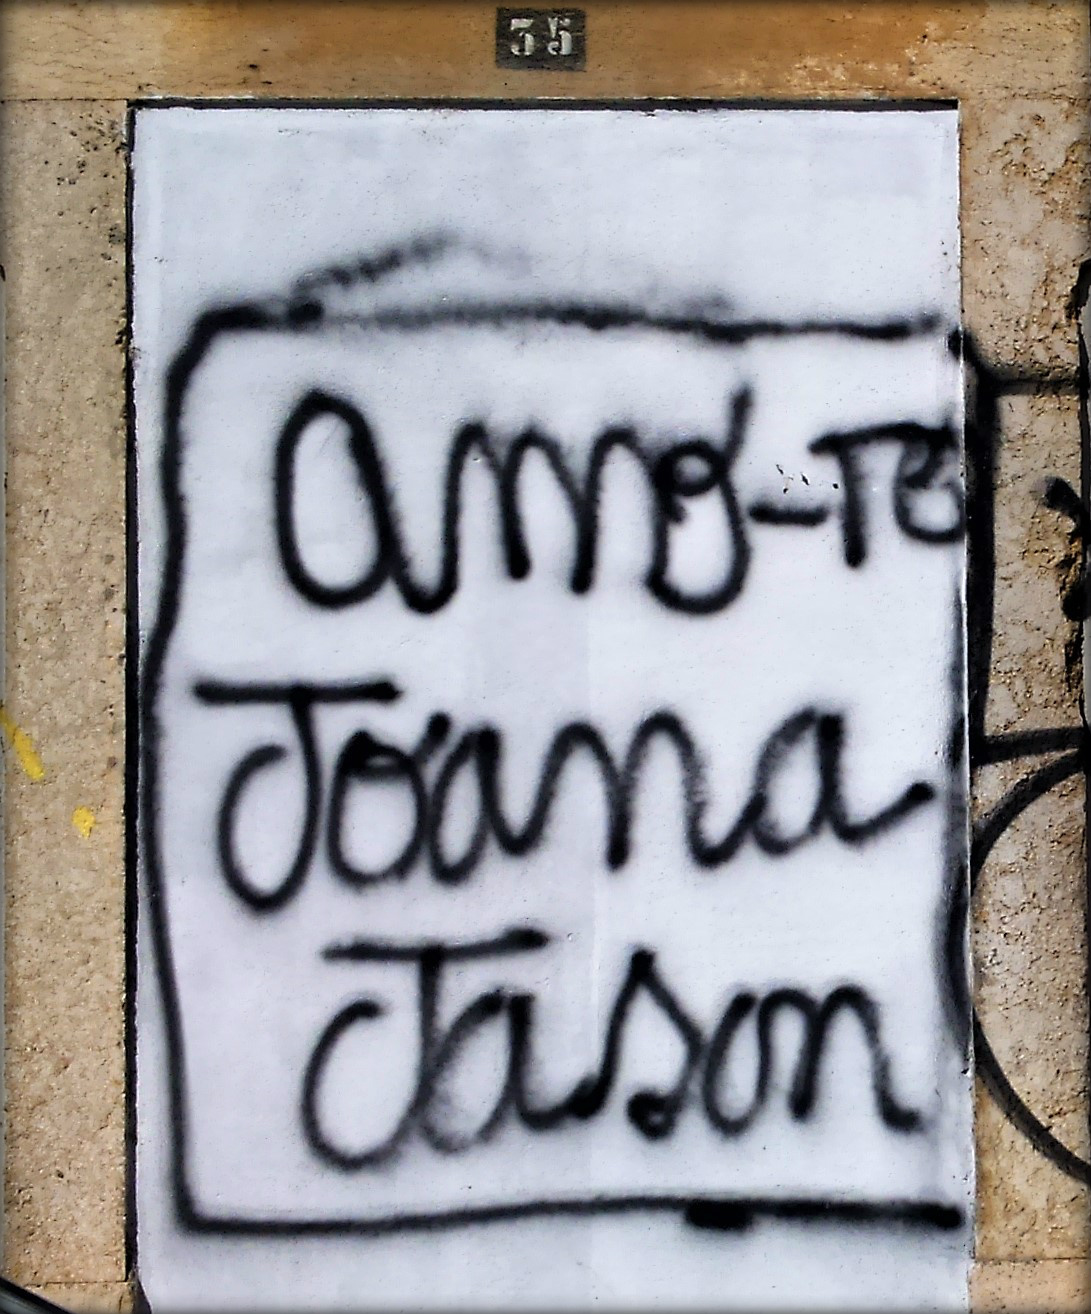 35
amo-TE
Joana
Jason